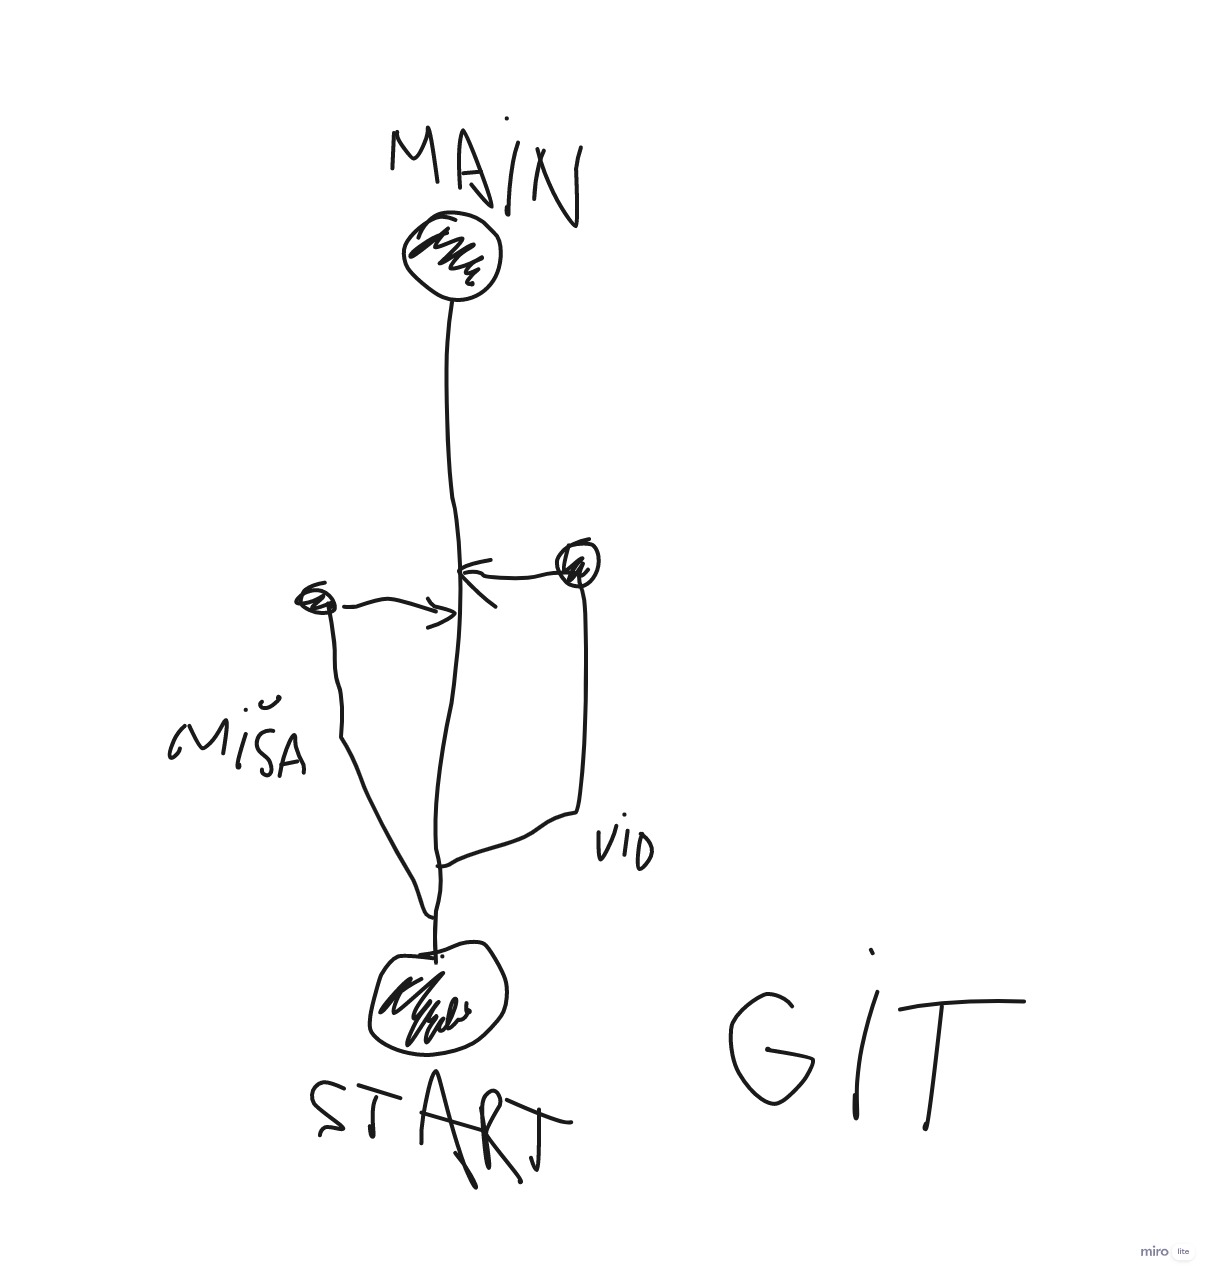 MAiN
MiŠA
ViD
START
GiT
miro lite